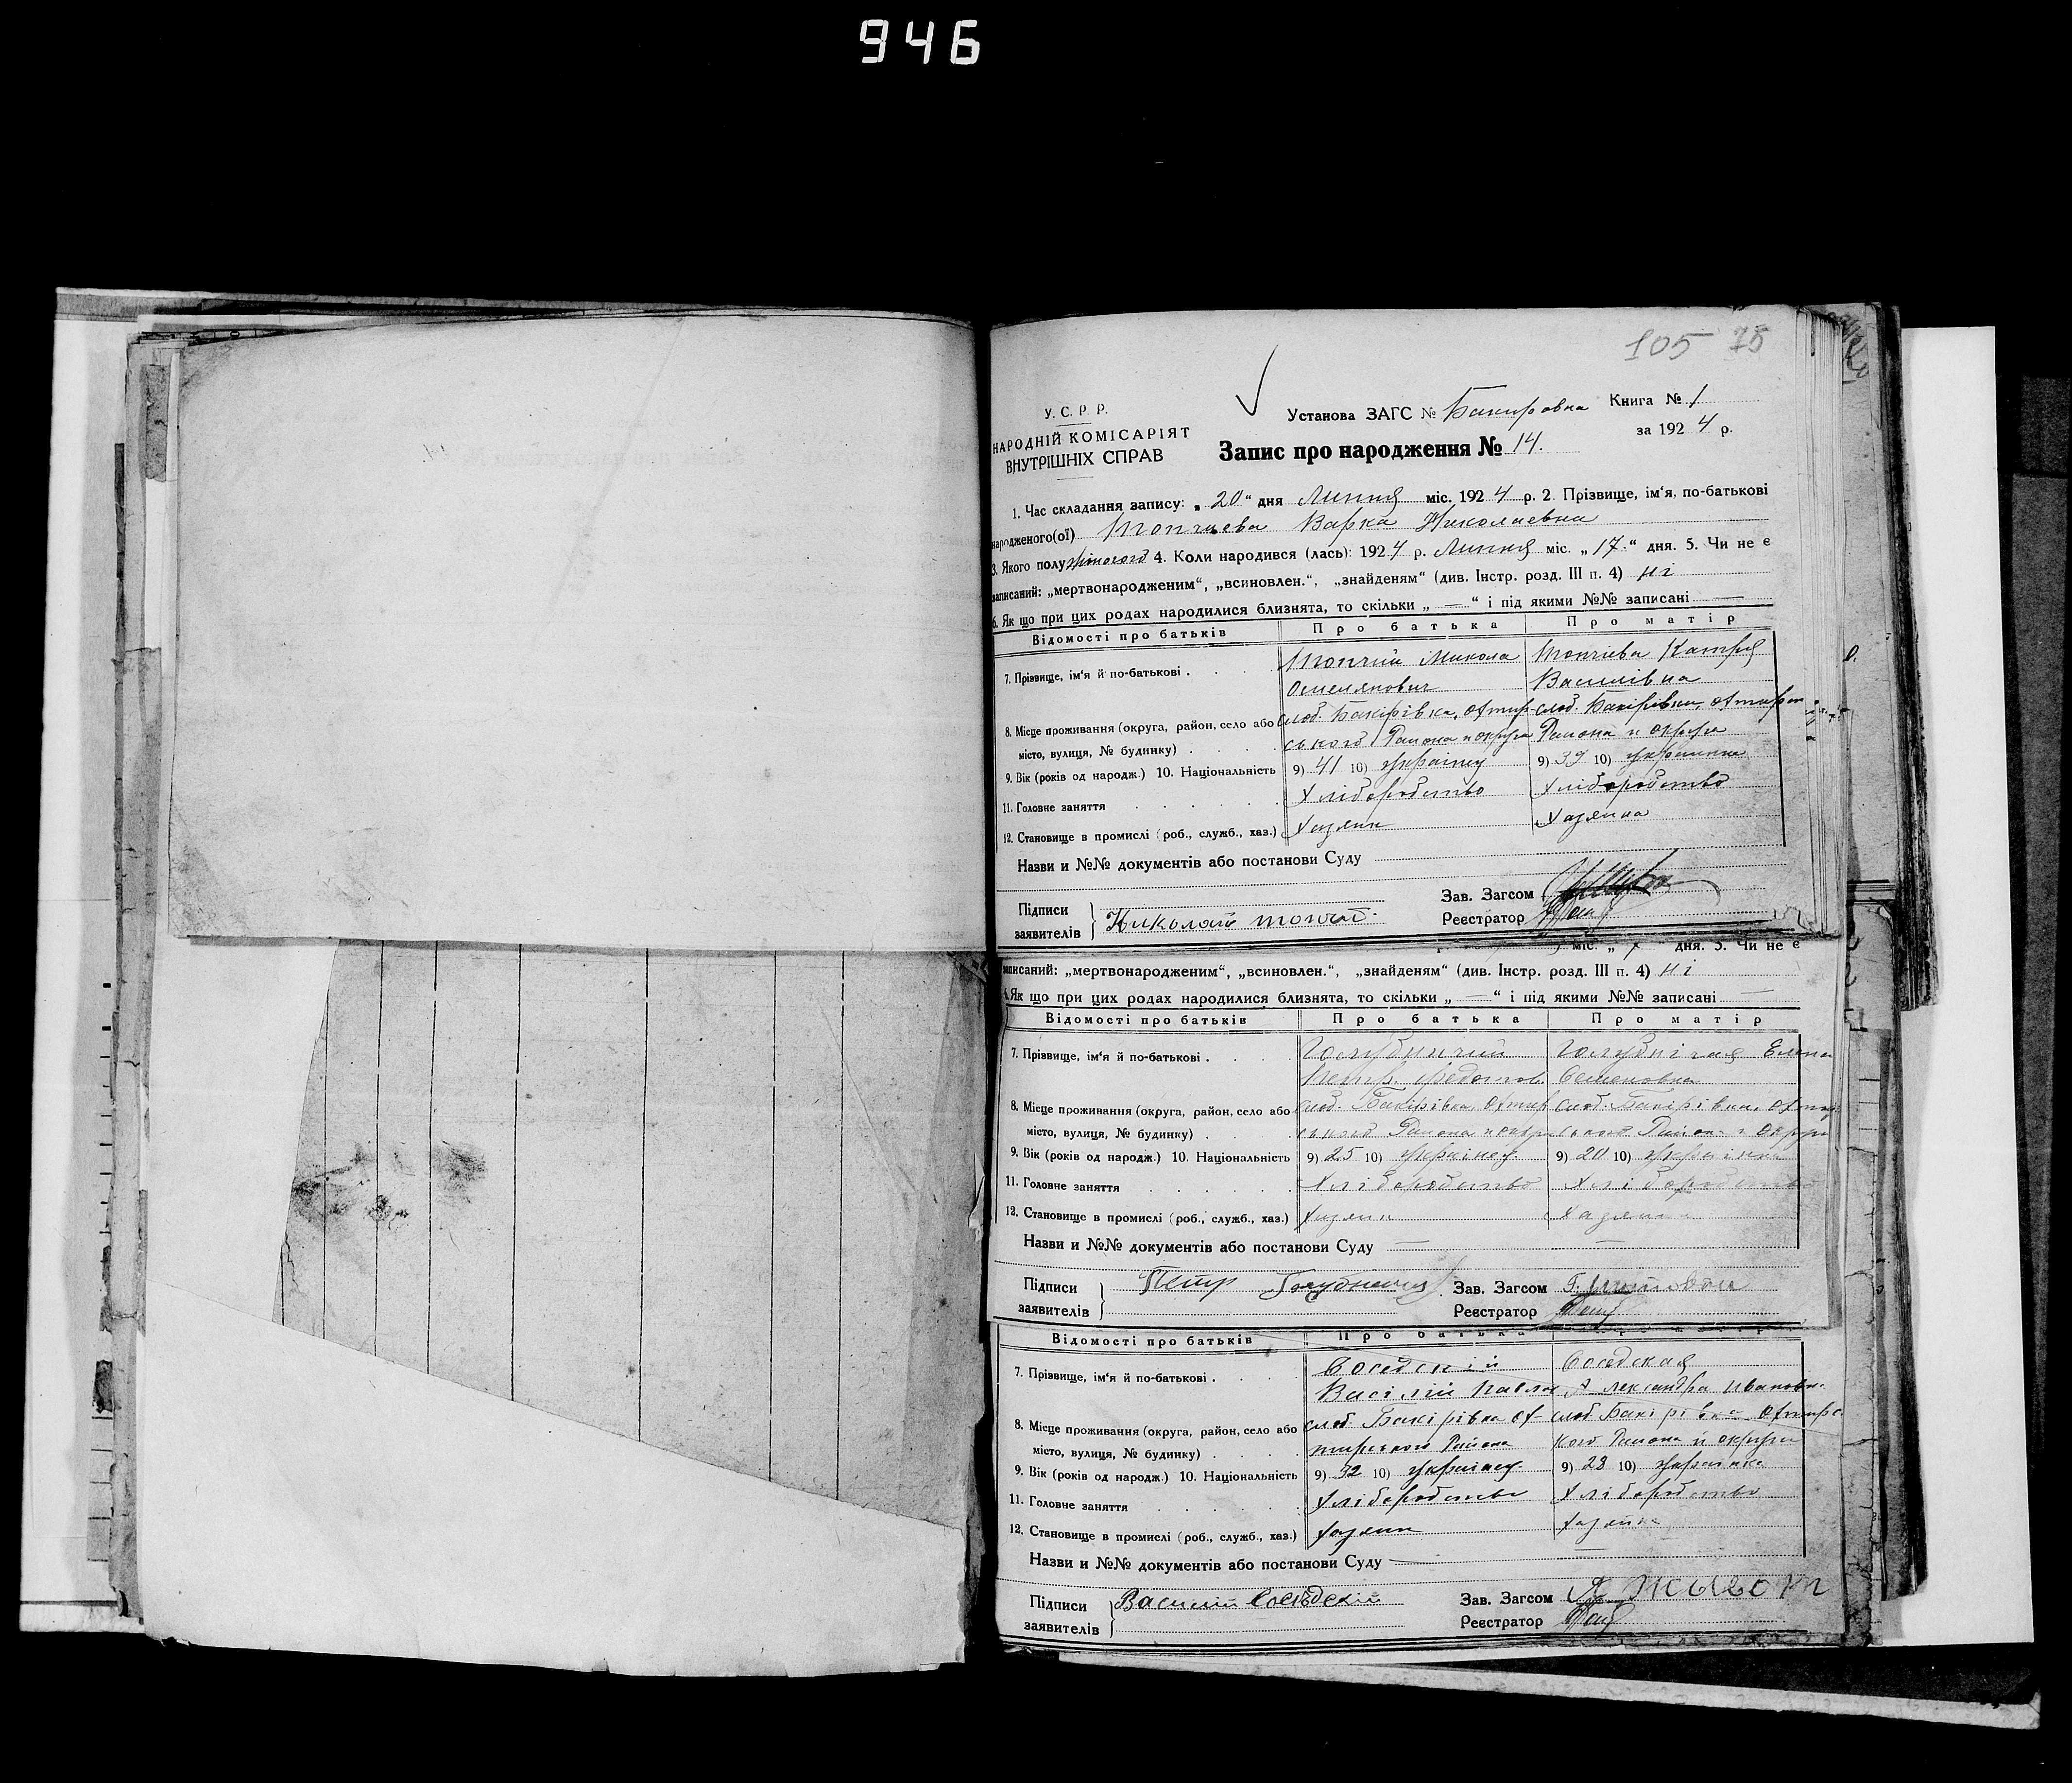 946
105 75
У. С. Р. Р.
НАРОДНІЙ КОМІСАРІЯТ
ВНУТРІШНІХ СПРАВ
Установа ЗАГС № Бакировка Книга № 1
за 1924 р.
Запис про народження № 14.
1. Час складання запису: „20“ дня Липня міс. 1924 р. 2. Прізвище, ім‘я, по-батькові
народженого(ої) Топчиева Варка Николаевна
3. Якого полу жіночого 4. Коли народився (лась): 1924 р. Липня міс. „17.“ дня. 5. Чи не є
записаний: „мертвонародженим“, „всиновлен.“, „знайденям“ (див. Інстр. розд. III п. 4) ні
6. Як що при цих родах народилися близнята, то скільки „ — “ і під якими №№ записані —
Відомості про батьків Про батька Про матір
7. Прізвище, ім‘я й по-батькові . Топчий Микола Топчиева Катря
Омелянович Василівна
8. Місце проживання (округа, район, село або слоб. Бакірівка, Охтир- слоб. Бакірівки, Охтирськ
місто, вулиця, № будинку) . ського Района и округи Района и округи
9. Вік (років од народж.) 10. Національність 9) 41 10) Українец 9) 39 10) Українка
11. Головне заняття Хліборобство Хліборобство
12. Становище в промислі (роб., служб., хаз.) Хазяин Хазяйка
Назви и №№ документів або постанови Суду —
Підписи
заявителів Николай топчій
Зав. Загсом
Реєстратор
міс. „ “ дня. 5. Чи не є
записаний: „мертвонародженим“, „всиновлен.“, „знайденям“ (див. Інстр. розд. III п. 4) ні
6. Як що при цих родах народилися близнята, то скільки „ — “ і під якими №№ записані —
Відомості про батьків Про батька Про матір
7. Прізвище, ім‘я й по-батькові . Голубничий Голубнічая Елена
Петр. Федотов. Семеновна
8. Місце проживання (округа, район, село або слоб. Бакірівка Охтир слоб. Бакірівки, Охтир
місто, вулиця, № будинку) . ського Района и округи ського Района и округи
9. Вік (років од народж.) 10. Національність 9) 25 10) Українец. 9) 20 10) Українка
11. Головне заняття Хліборобство Хліборобство
12. Становище в промислі (роб., служб., хаз.) Хазяин Хазяйка
Назви и №№ документів або постанови Суду —
Підписи
заявителів Петр Голубничий
Зав. Загсом
Реєстратор
Відомості про батьків Про батька Про матір
7. Прізвище, ім‘я й по-батькові . Соседскій Соседская
Васілій Павлов Александра Ивановн.
8. Місце проживання (округа, район, село або слоб. Бакірівка Ох- слоб. Бакірівка Охтирс
місто, вулиця, № будинку) . тирського Района кого Района и округи
9. Вік (років од народж.) 10. Національність 9) 32 10) Українец 9) 28 10) Українка
11. Головне заняття Хліборобство Хліборобство
12. Становище в промислі (роб., служб., хаз.) Хазяин Хазяйка
Назви и №№ документів або постанови Суду —
Підписи
заявителів Василий Соседский
Зав. Загсом Живот
Реєстратор